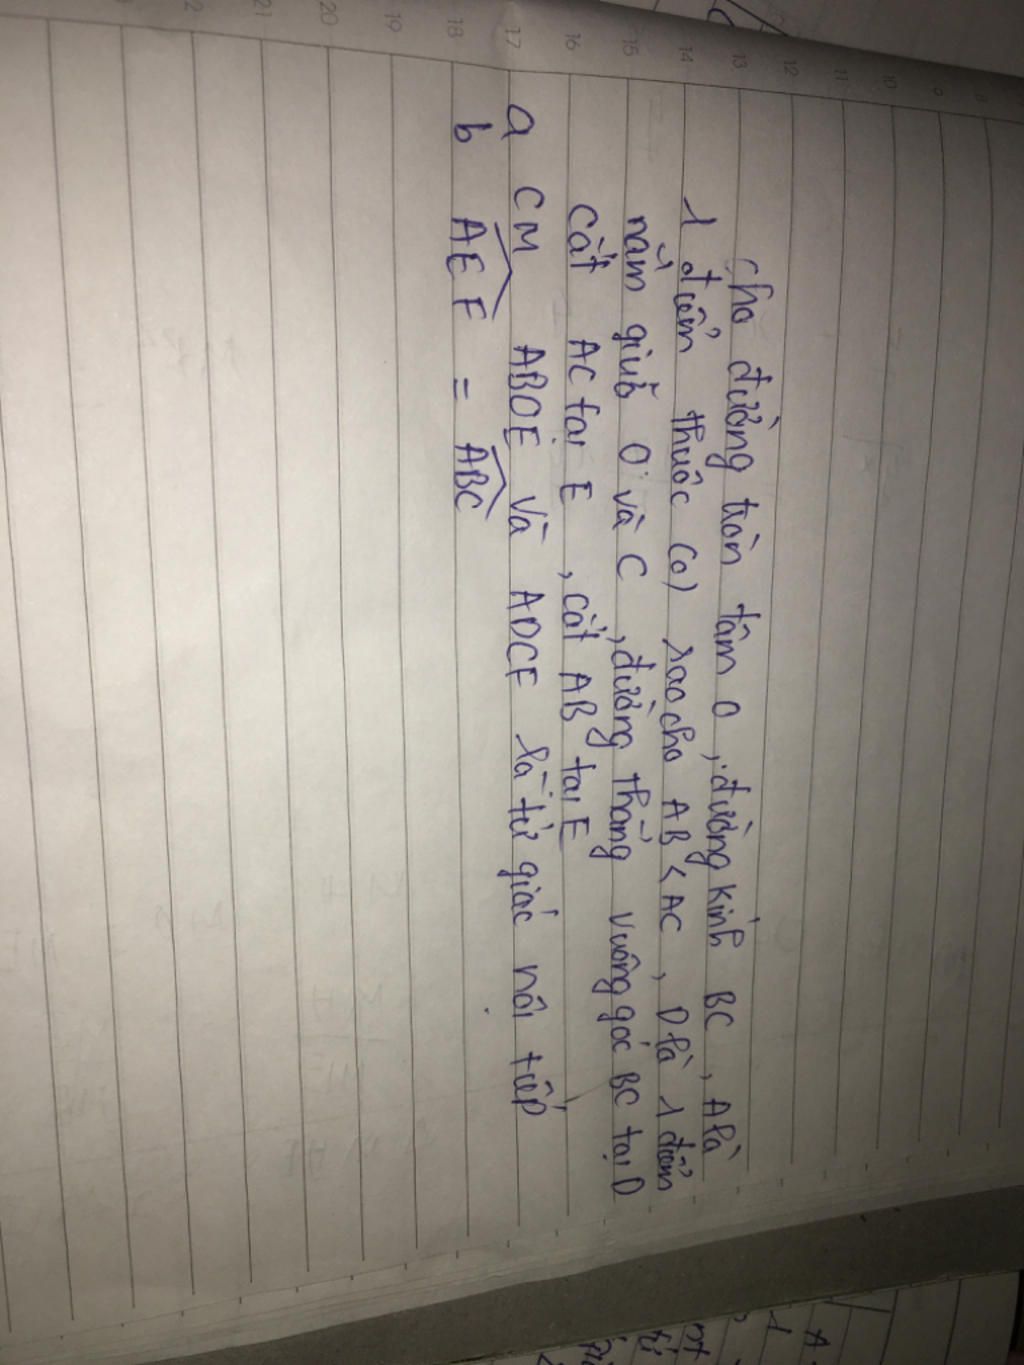 cho đường tròn tâm O, đường kính BC, A là
1 điểm thuộc (O) sao cho AB < AC, D là 1 điểm
nằm giữa O và C, đường thẳng vuông góc BC tại D
cắt AC tại E, cắt AB tại E
a CM ABOE và ADCF là tứ giác nội tiếp
b AEF = ABC
8
9
10
11
12
13
14
15
16
17
18
19
20
21